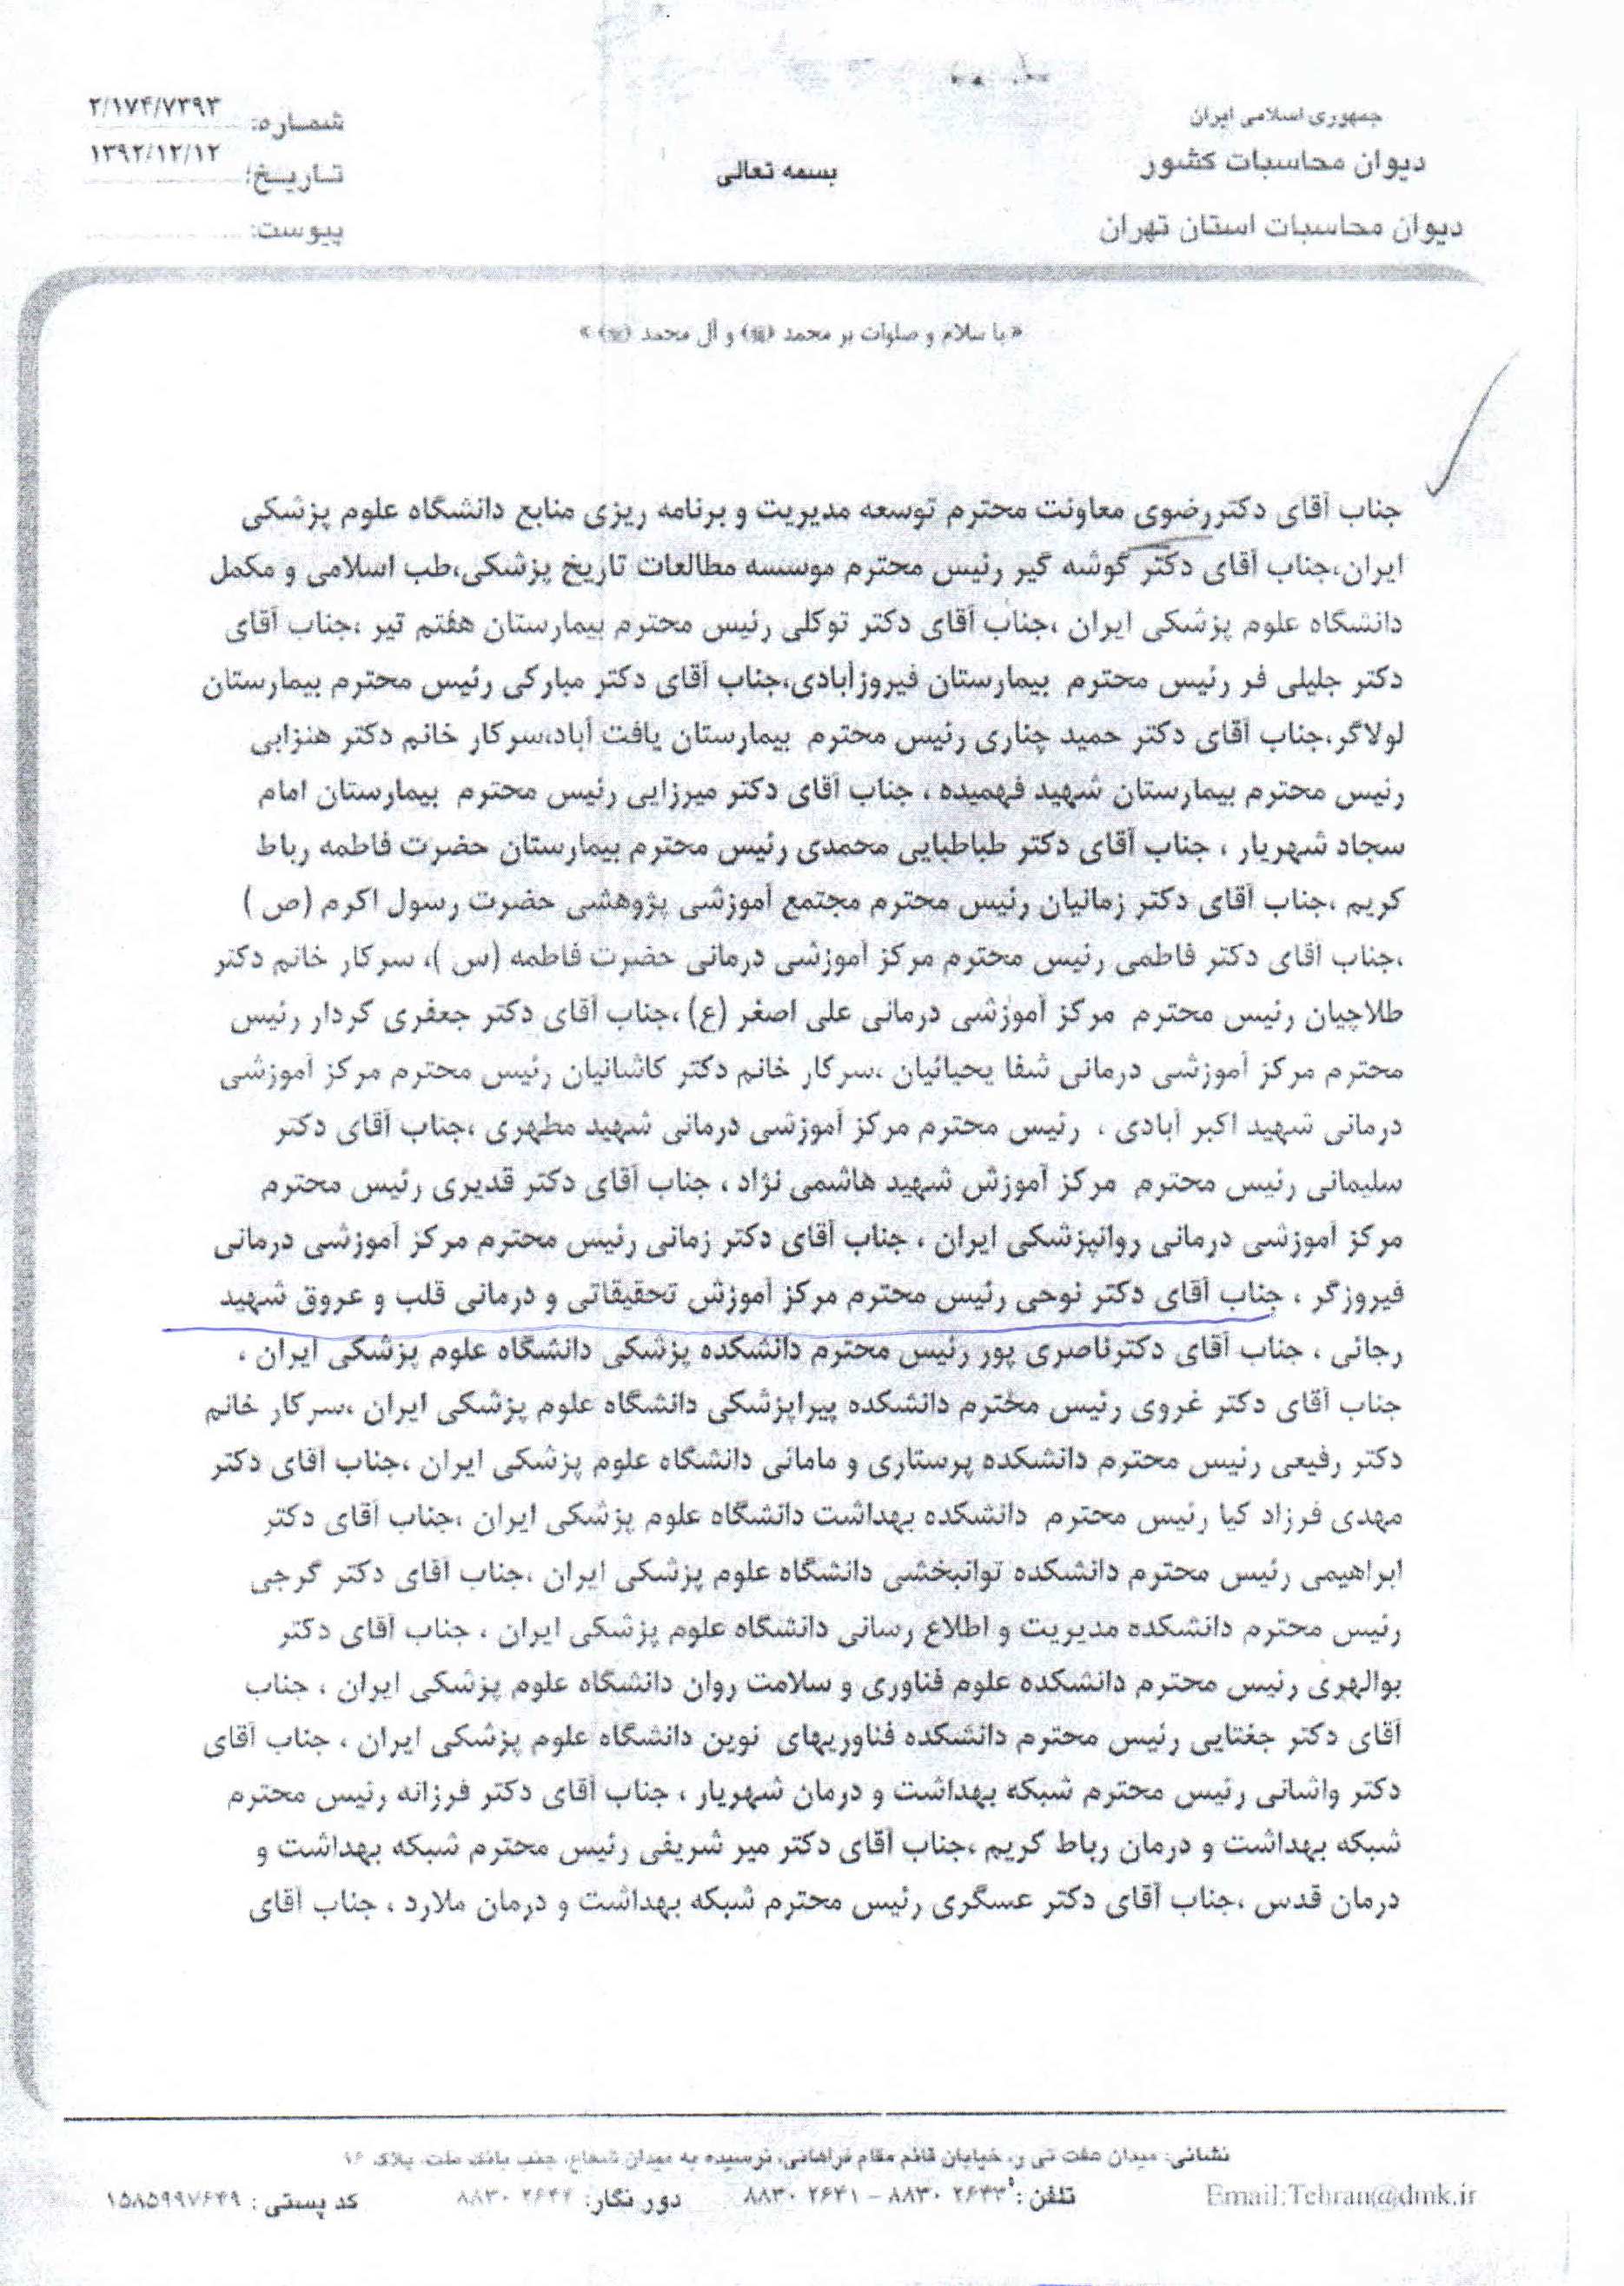 جمهوری اسلامی ایران
دیوان محاسبات کشور
دیوان محاسبات استان تهران
بسمه تعالی
شماره: ۲/۱۷۴/۷۳۹۳
تاریخ: ۱۳۹۲/۱۲/۱۲
پیوست:
«با سلام و صلوات بر محمد (ص) و آل محمد (ص)»
جناب آقای دکتررضوی معاونت محترم توسعه مدیریت و برنامه ریزی منابع دانشگاه علوم پزشکی
ایران،جناب آقای دکتر گوشه گیر رئیس محترم موسسه مطالعات تاریخ پزشکی،طب اسلامی و مکمل
دانشگاه علوم پزشکی ایران ،جناب آقای دکتر توکلی رئیس محترم بیمارستان هفتم تیر ،جناب آقای
دکتر جلیلی فر رئیس محترم بیمارستان فیروزآبادی،جناب آقای دکتر مبارکی رئیس محترم بیمارستان
لولاگر،جناب آقای دکتر حمید چناری رئیس محترم بیمارستان یافت آباد،سرکار خانم دکتر هنزابی
رئیس محترم بیمارستان شهید فهمیده ، جناب آقای دکتر میرزایی رئیس محترم بیمارستان امام
سجاد شهریار ، جناب آقای دکتر طباطبایی محمدی رئیس محترم بیمارستان حضرت فاطمه رباط
کریم ،جناب آقای دکتر زمانیان رئیس محترم مجتمع آموزشی پژوهشی حضرت رسول اکرم (ص )
،جناب آقای دکتر فاطمی رئیس محترم مرکز آموزشی درمانی حضرت فاطمه (س )، سرکار خانم دکتر
طلاچیان رئیس محترم مرکز آموزشی درمانی علی اصغر (ع) ،جناب آقای دکتر جعفری کردار رئیس
محترم مرکز آموزشی درمانی شفا یحیائیان ،سرکار خانم دکتر کاشانیان رئیس محترم مرکز آموزشی
درمانی شهید اکبر آبادی ، رئیس محترم مرکز آموزشی درمانی شهید مطهری ،جناب آقای دکتر
سلیمانی رئیس محترم مرکز آموزش شهید هاشمی نژاد ، جناب آقای دکتر قدیری رئیس محترم
مرکز آموزشی درمانی روانپزشکی ایران ، جناب آقای دکتر زمانی رئیس محترم مرکز آموزشی درمانی
فیروزگر ، جناب آقای دکتر نوحی رئیس محترم مرکز آموزش تحقیقاتی و درمانی قلب و عروق شهید
رجائی ، جناب آقای دکترناصری پور رئیس محترم دانشکده پزشکی دانشگاه علوم پزشکی ایران ،
جناب آقای دکتر غروی رئیس محترم دانشکده پیراپزشکی دانشگاه علوم پزشکی ایران ،سرکار خانم
دکتر رفیعی رئیس محترم دانشکده پرستاری و مامائی دانشگاه علوم پزشکی ایران ،جناب آقای دکتر
مهدی فرزاد کیا رئیس محترم دانشکده بهداشت دانشگاه علوم پزشکی ایران ،جناب آقای دکتر
ابراهیمی رئیس محترم دانشکده توانبخشی دانشگاه علوم پزشکی ایران ،جناب آقای دکتر گرجی
رئیس محترم دانشکده مدیریت و اطلاع رسانی دانشگاه علوم پزشکی ایران ، جناب آقای دکتر
بوالهری رئیس محترم دانشکده علوم فناوری و سلامت روان دانشگاه علوم پزشکی ایران ، جناب
آقای دکتر جغتایی رئیس محترم دانشکده فناوریهای نوین دانشگاه علوم پزشکی ایران ، جناب آقای
دکتر واشانی رئیس محترم شبکه بهداشت و درمان شهریار ، جناب آقای دکتر فرزانه رئیس محترم
شبکه بهداشت و درمان رباط کریم ،جناب آقای دکتر میر شریفی رئیس محترم شبکه بهداشت و
درمان قدس ،جناب آقای دکتر عسگری رئیس محترم شبکه بهداشت و درمان ملارد ، جناب آقای
نشانی: میدان هفت تی ر، خیابان قائم مقام فراهانی، نرسیده به میدان شعاع، جنب بانک ملت، پلاک ۱۶
Email:Tehran@dmk.ir تلفن: ۸۸۳۰ ۲۶۴۳ – ۸۸۳۰ ۲۶۴۱ دور نگار: ۸۸۳۰ ۲۶۴۴ کد پستی : ۱۵۸۵۹۹۷۶۴۹